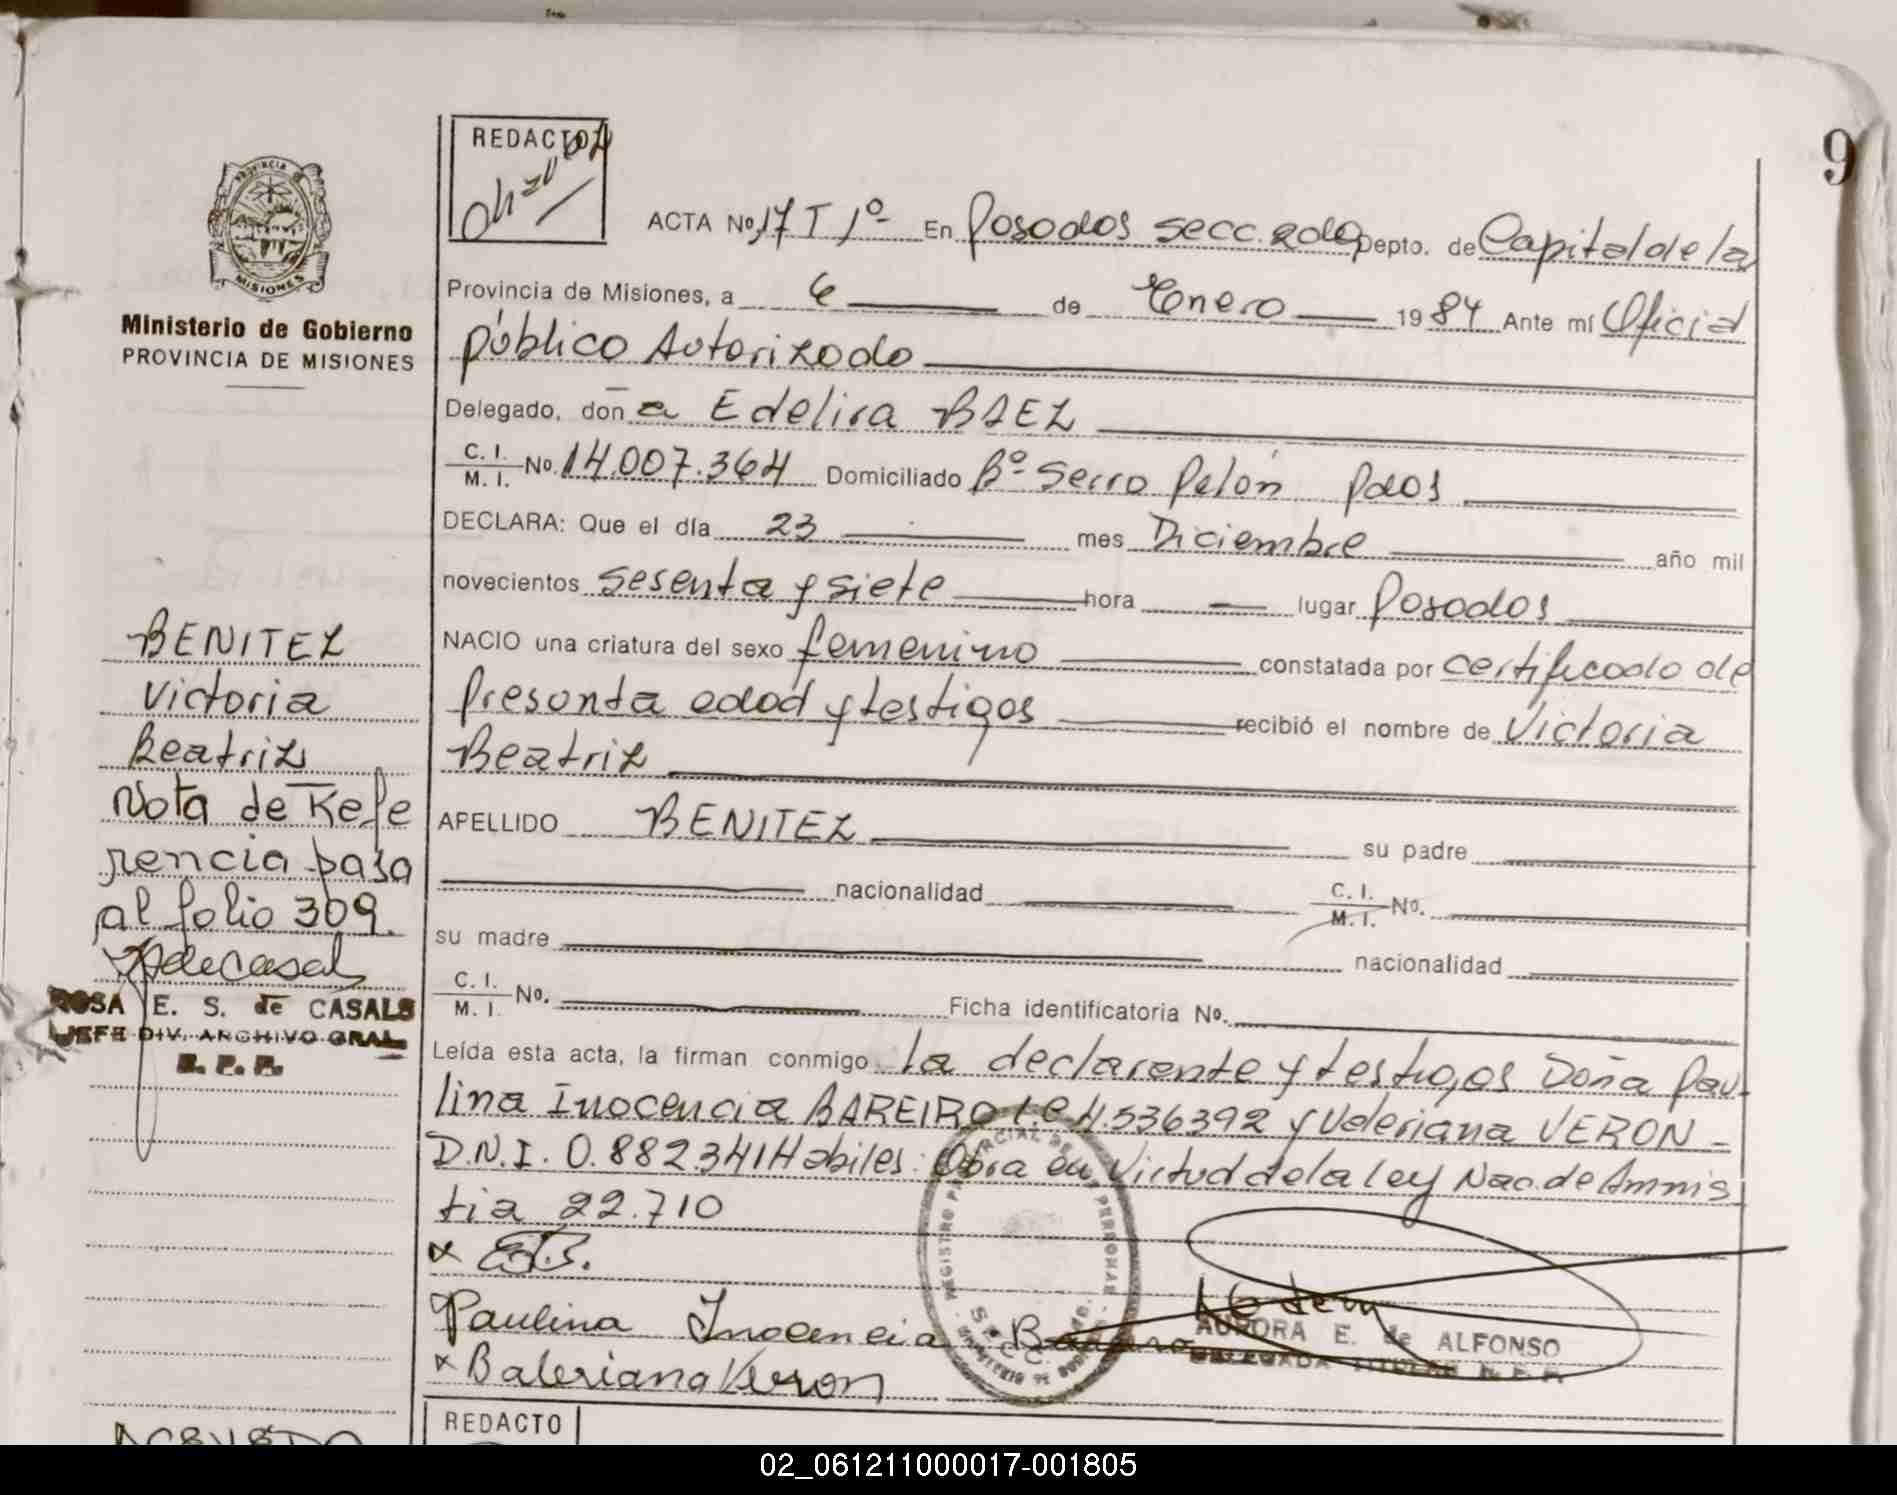 9
REDACTO
PROVINCIA
MISIONES
Ministerio de Gobierno
PROVINCIA DE MISIONES
ACTA No. 17 T 1º En Posadas secc. 2da Depto. de Capital de la
Provincia de Misiones, a 6 de Enero 1984 Ante mí Oficial
público Autorizado
Delegado, don a Edelira BAEZ
C. I. M. I. No. 14.007.364 Domiciliado Bº Serro Pelón Pdas
DECLARA: Que el día 23 mes Diciembre año mil
novecientos sesenta y siete hora lugar Posadas
NACIO una criatura del sexo femenino constatada por certificado de
Presonta edad y testigos recibió el nombre de Victoria
Beatriz
APELLIDO BENITEZ su padre
nacionalidad C. I. M. I. No.
su madre nacionalidad
C. I. M. I. No. Ficha identificatoria No.
Leída esta acta, la firman conmigo La declarante y testigos Doña Pau-
lina Inocencia BAREIRO L.C 4.536392 y Valeriana VERON -
D.N.I. 0.882.341 Habiles: Obra en Virtud de la ley Nac. de Amnis
tia 22.710
x E.B.
Paulina Inocencia Bareiro
x Baleriana Veron
AURORA E. de ALFONSO
DELEGADA TITULAR R. P. P.
REGISTRO PROVINCIAL DE LAS PERSONAS
BENITEZ
Victoria
Beatriz
Nota de Refe
rencia pasa
al folio 309.
ROSA E. S. de CASALS
JEFE DIV. ARCHIVO GRAL
R. P. P.
REDACTO
02_061211000017-001805